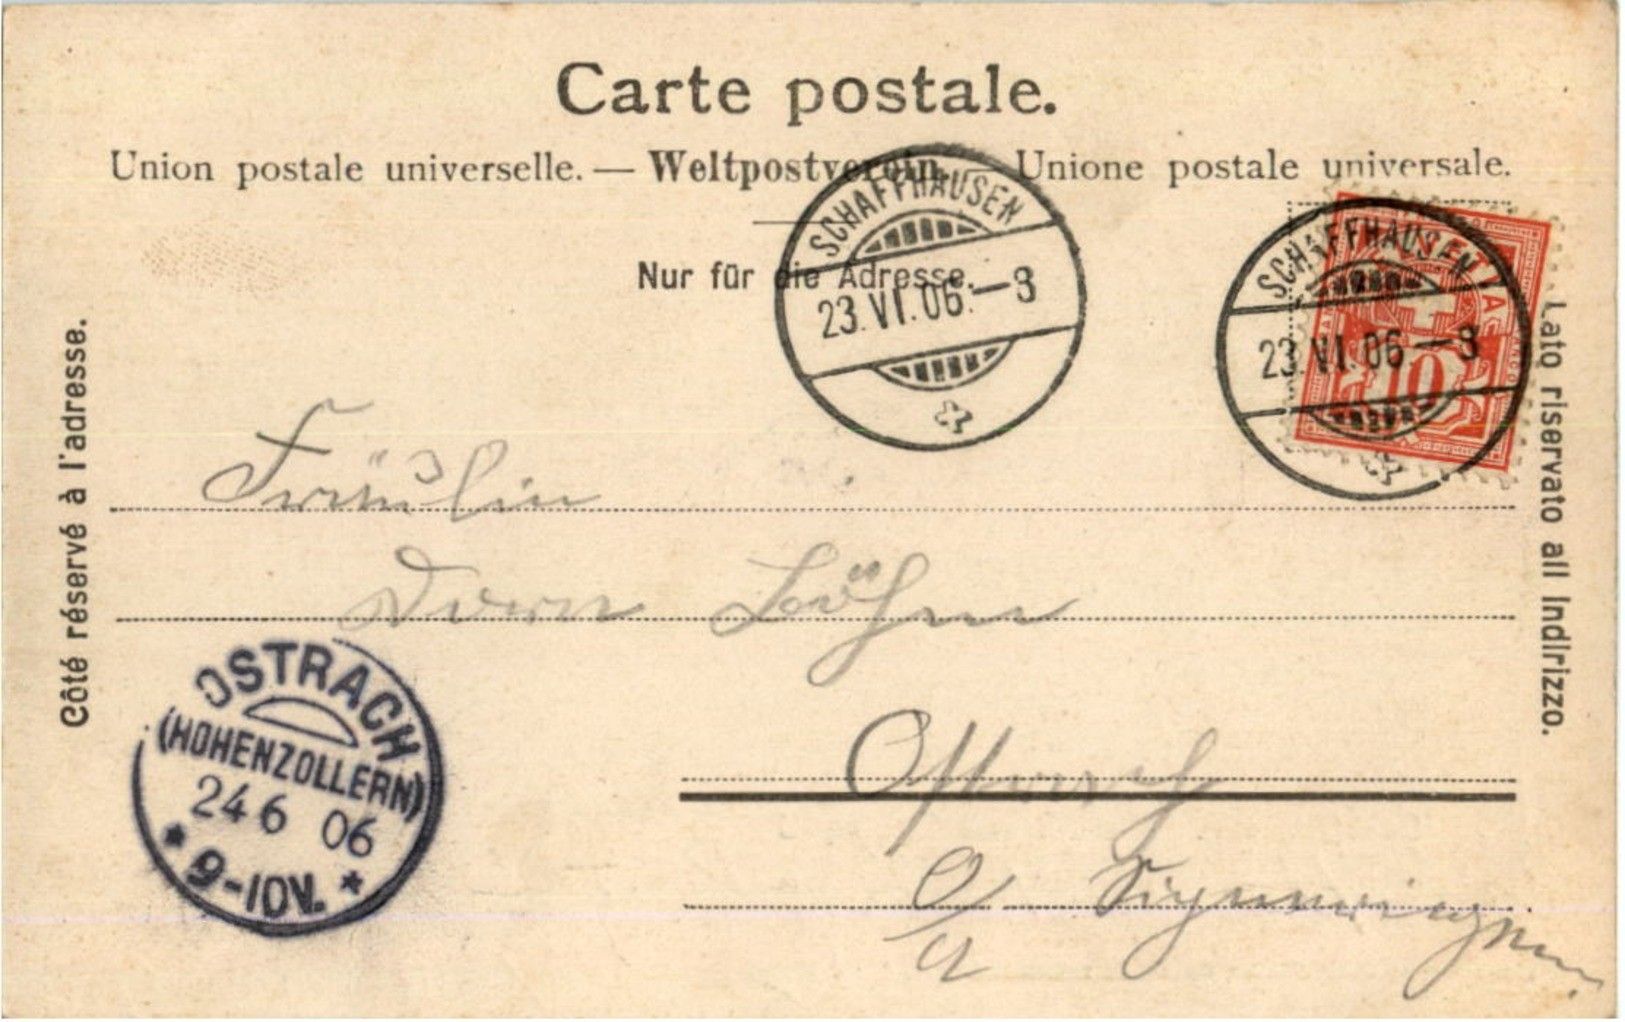 Carte postale.
Union postale universelle. — Weltpostverein. — Unione postale universale.
Nur für die Adresse.
SCHAFFHAUSEN
23.VI.06.—8
SCHAFFHAUSEN
23.VI.06—8
10
Côté réservé à l'adresse.
Lato riservato all Indirizzo.
Fräulein
Böhm
Ostrach
OSTRACH
(HOHENZOLLERN)
24 6 06
9-10V.
Sigmaringen